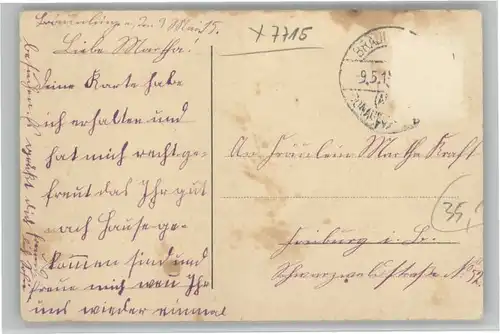 Bräunlingen, d. 9 Mai 15.
Liebe Martha!
Deine Karte habe
ich erhalten und
hat mich recht ge-
freut das Ihr gut
nach Hause ge-
kommen sind und
freue mich wen Ihr
uns wieder einmal
besuchen
grüßt dich
X 7715
BRÄUN
9.5.15
An Fräulein Martha Kraft
Freiburg i. Br.
Schwarzwaldstraße No
35,